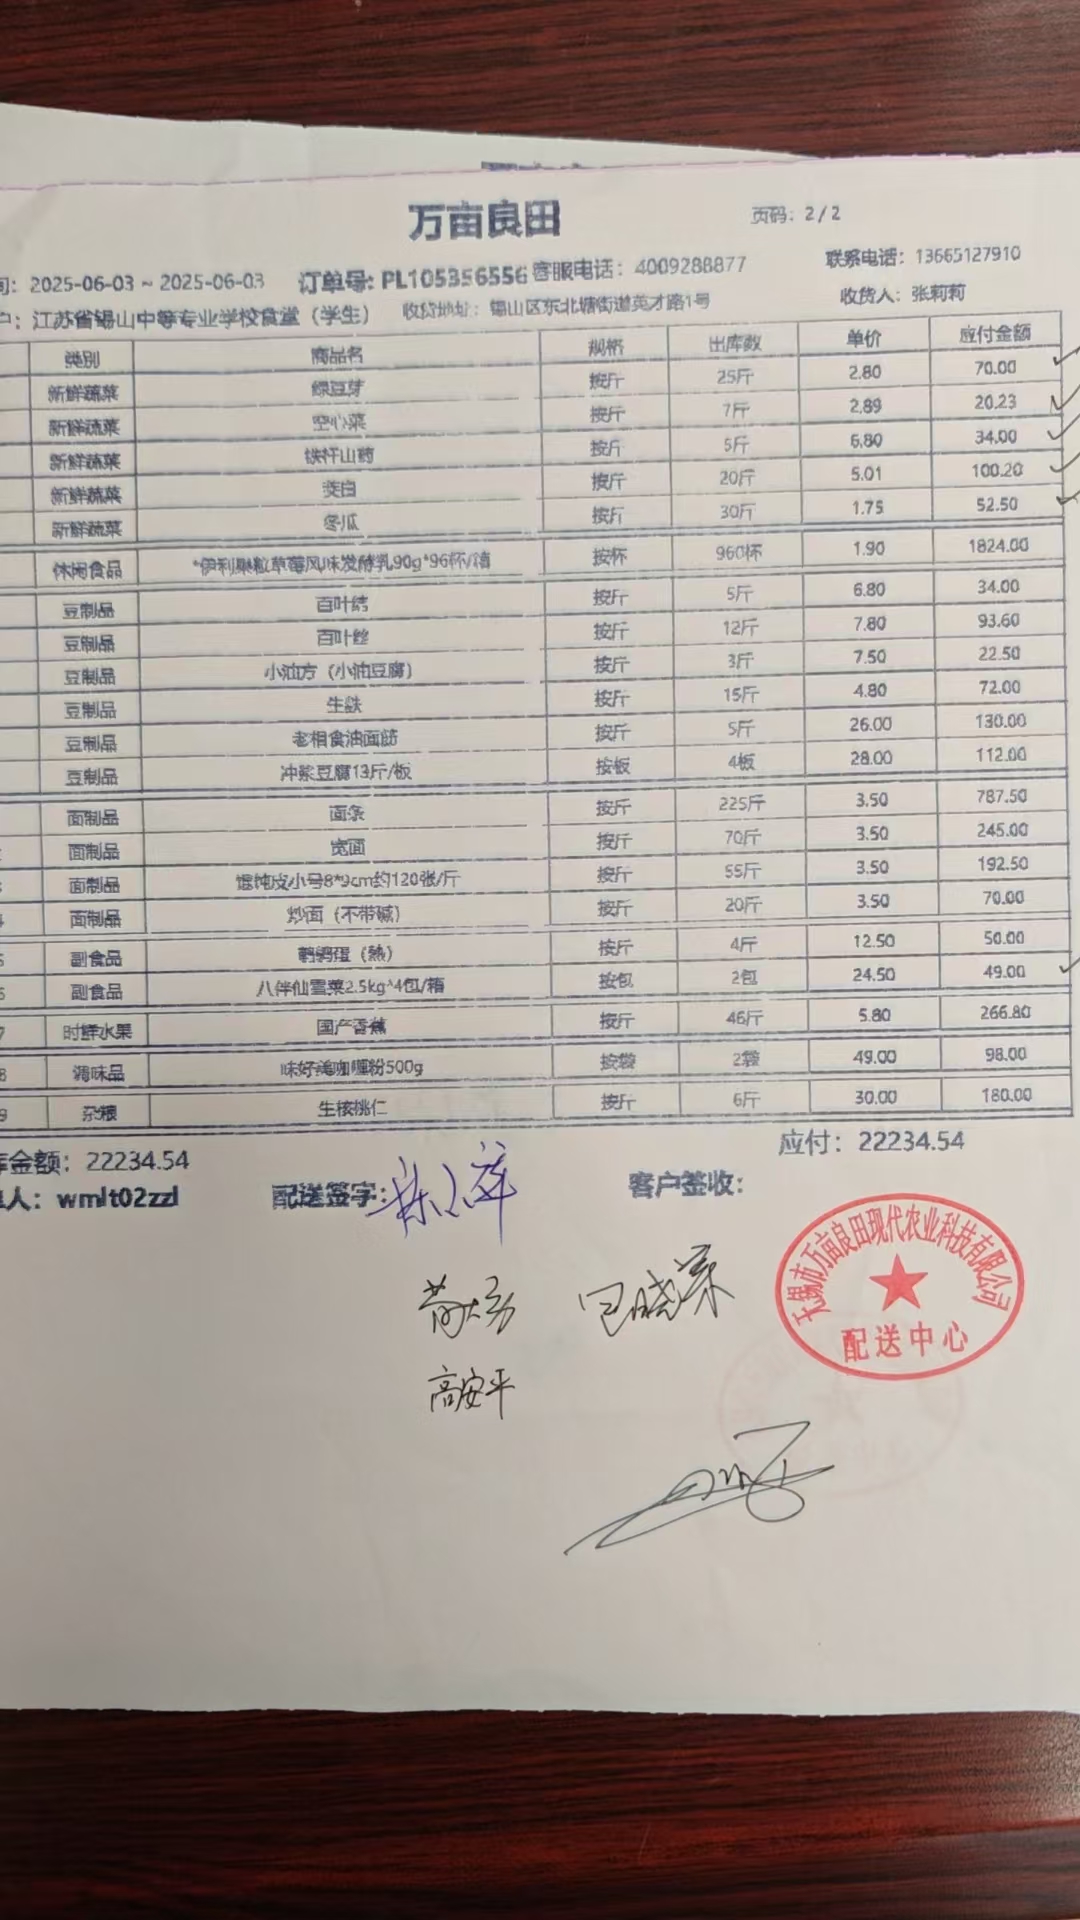 万亩良田
页码：2 / 2
2025-06-03 ~ 2025-06-03 订单号: PL105356556 客服电话：4009288877 联系电话：13665127910
江苏省锡山中等专业学校食堂（学生） 收货地址：锡山区东北塘街道英才路1号 收货人：张莉莉
类别 商品名 规格 出库数 单价 应付金额
新鲜蔬菜 绿豆芽 按斤 25斤 2.80 70.00
新鲜蔬菜 空心菜 按斤 7斤 2.89 20.23
新鲜蔬菜 铁杆山药 按斤 5斤 6.80 34.00
新鲜蔬菜 茭白 按斤 20斤 5.01 100.20
新鲜蔬菜 冬瓜 按斤 30斤 1.75 52.50
休闲食品 *伊利果粒草莓风味发酵乳90g*96杯/箱 按杯 960杯 1.90 1824.00
豆制品 百叶结 按斤 5斤 6.80 34.00
豆制品 百叶丝 按斤 12斤 7.80 93.60
豆制品 小油方（小油豆腐） 按斤 3斤 7.50 22.50
豆制品 生麸 按斤 15斤 4.80 72.00
豆制品 老相食油面筋 按斤 5斤 26.00 130.00
豆制品 冲浆豆腐13斤/板 按板 4板 28.00 112.00
面制品 面条 按斤 225斤 3.50 787.50
面制品 宽面 按斤 70斤 3.50 245.00
面制品 馄饨皮小号8*9cm约120张/斤 按斤 55斤 3.50 192.50
面制品 炒面（不带碱） 按斤 20斤 3.50 70.00
副食品 鹌鹑蛋（熟） 按斤 4斤 12.50 50.00
副食品 八伴仙雪菜2.5kg*4包/箱 按包 2包 24.50 49.00
7 时鲜水果 国产香蕉 按斤 46斤 5.80 266.80
8 调味品 味好美咖喱粉500g 按袋 2袋 49.00 98.00
9 杂粮 生核桃仁 按斤 6斤 30.00 180.00
库金额：22234.54 应付：22234.54
单人：wmlt02zzl 配送签字： 客户签收：
无锡市万亩良田现代农业科技有限公司
配送中心
高安平